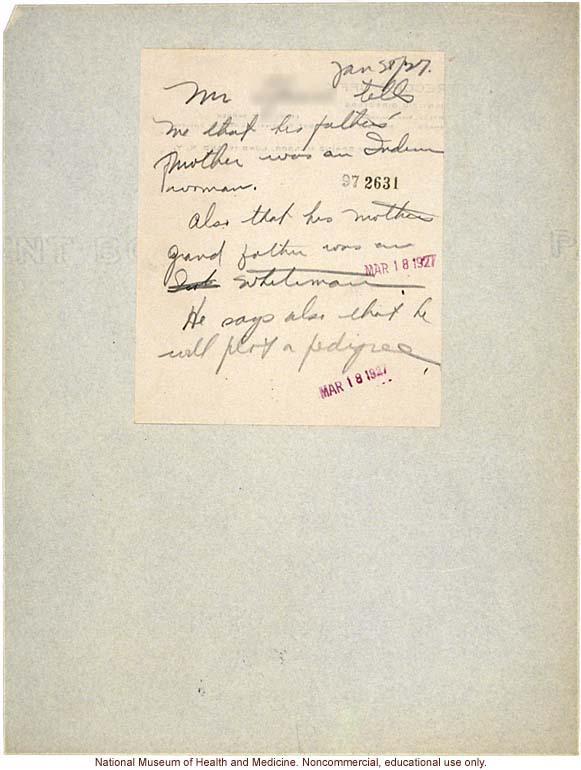 Jan 28/27.
Mr tells
me that his fathers'
mother was an Indian
woman.
97 2631
Also that his mothers
grand father was an
MAR 18 1927
whiteman.
He says also that he
will plot a pedigree
MAR 18 1927
National Museum of Health and Medicine. Noncommercial, educational use only.